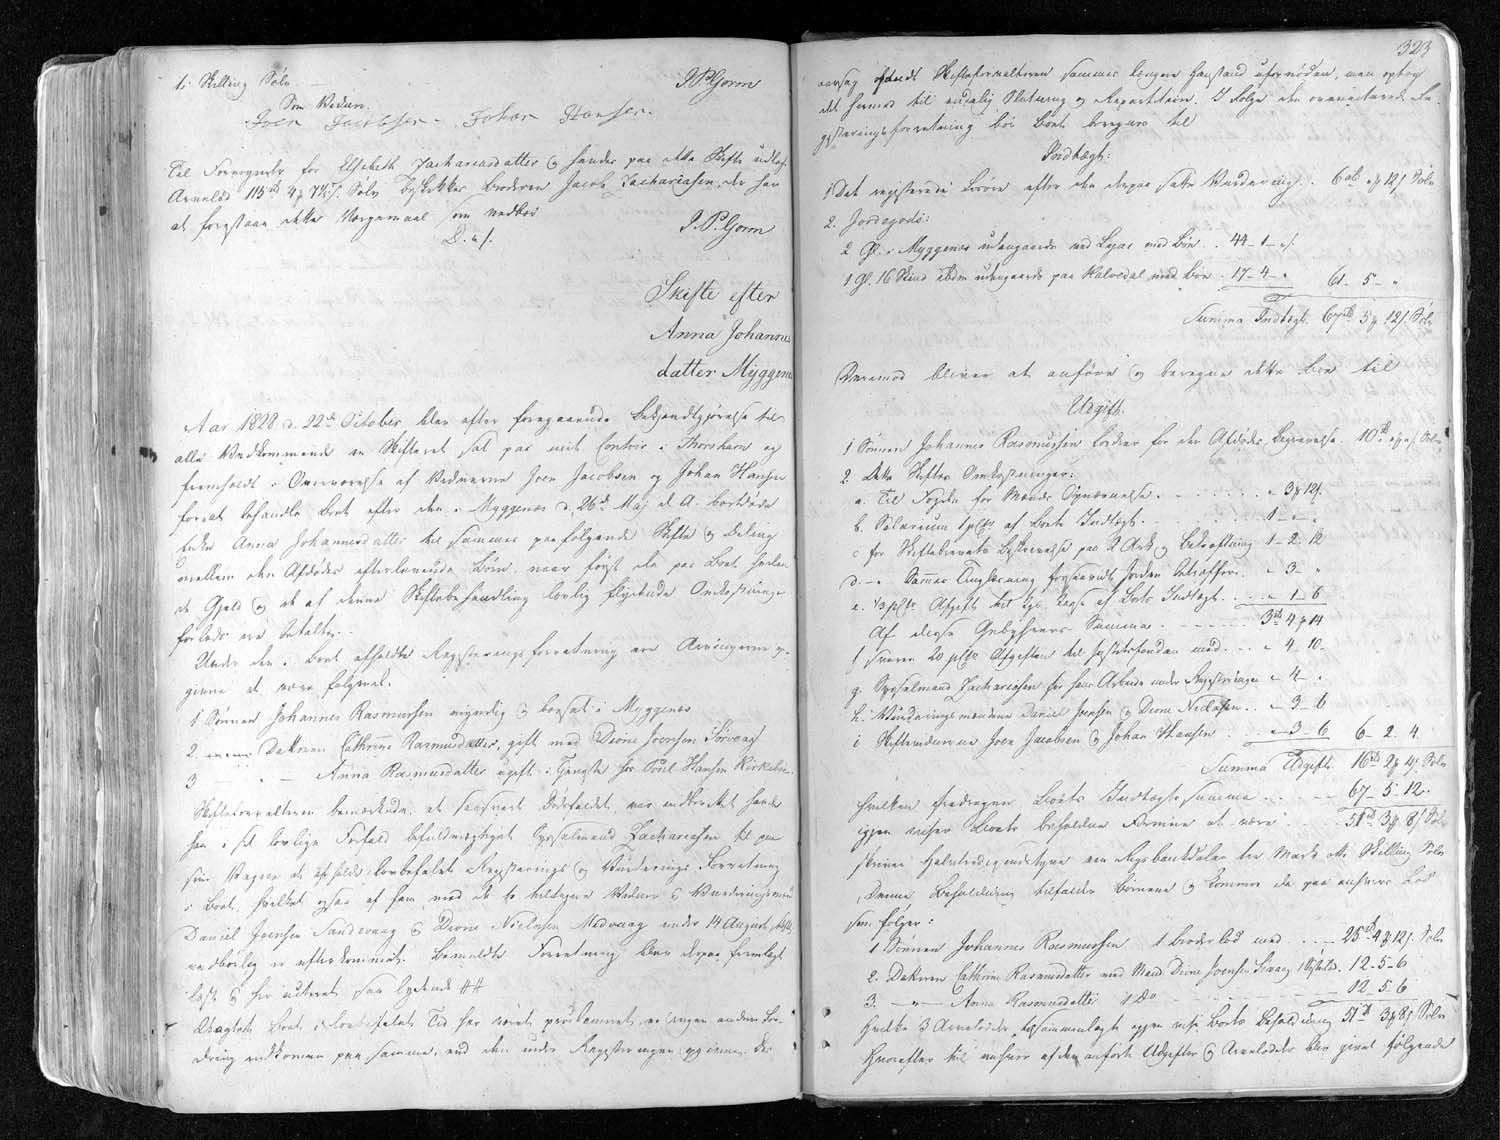 ti Skilling Sølv — J.P. Gorm
Som Vidner.
Joen Jacobsen. Johan Hansen.
Til Formynder for Elsebeth Zachariasdatter og hendes paa dette Skifte udlagte
Arvelod 115 rd 4 ƶ 7½ s. Sølv beskikkes Broderen Jacob Zachariasen, der har
at forestaae dette Værgemaal som vedbør
D. u. s. J.P. Gorm
Skifte efter
Anna Johannes
datter Myggenæs
Aar 1828 d. 22de October blev efter foregaaende Bekjendtgjørelse til
alle Vedkommende en Skifteret sat paa mit Contoir i Thorshavn og
fremholdt i Overværelse af Vidnerne Joen Jacobsen og Johan Hansen
for at behandle Boet efter den i Myggenæs d. 26de Maj d. A. bortdøde
Enke Anna Johannesdatter til sammes paafølgende Skifte og Deling
mellem den Afdødes efterlevende Børn, naar først den paa Boet heften-
de Gjeld og de af denne Skiftebehandling lovlig flydende Omkostninger
forlods ere betalte.
Under den i Boet afholdte Registeringsforretning ere Arvingerne op-
givne at være følgende.
1 Sønnen Johannes Rasmussen myndig og bosat i Myggenæs
2 Datteren Cathrine Rasmusdatter, gift med Dione Joensen Sørvaag
3 — " — Anna Rasmusdatter ugift i Tjeneste hos Poul Hansen Kirkebøe.
Skifteforvalteren bemærkede, at saasnart Dødsfaldet var indberettet havde
han i sit lovlige Forfald befuldmægtiget Sysselmand Zachariasen til paa
sine Vegne at afholde lovbefalet Registerings og Vurderings Forretning
i Boet, hvilket ogsaa af ham med de to tiltagne Vidner og Vurderingsmænd
Daniel Joensen Sandevaag og Dione Nielsen Midvaag under 14 August sidstl.
vedbørlig er efterkommet. Bemeldte Forretning blev derpaa fremlagt
læst og her acteret saa lydende ##
Uagtet Boet i lovbestemt Tid har været proclameret, er ingen anden For-
dring indkommen paa samme, end den under Registeringen opgivne. Der
323
aarsag fandt Skifteforvalteren sammes længere Henstand ufornøden, men optog
det hermed til endelig Slutning og Repartition. I Følge den ovenacterede Re-
gisteringsforretning bør Boet beregnes til
Indtægt:
1 Det registerede Løsøre efter den derpaa satte Vurdering .. 6 rd " ƶ 12 s. Sølv
2. Jordegods:
2 Gl. i Myggenæs udengaards ved Lejer med Bøn .. 44 – 1 – " s.
1 Gl. 16 Skind ibdm udengaards paa Kalvedal med bøn . 17 – 4 – " 61 – 5 – "
Summa Indtægt. 67 rd 5 ƶ 12 s. Sølv
Derimod bliver at anføre og beregne dette Boe til
Udgift.
1 Sønnen Johannes Rasmussen fordrer for den Afdødes Begravelse. 10 rd " ƶ " s. Sølv
2. Dette Skiftes Omkostninger:
a. Til Fogden for Mænds Opnævnelse . - - - - - " 3 ƶ 12 s.
b. Salarium 1 pCto af Boets Indtægt. - - - - 1 – " – "
c for Skiftebrevets Beskrivelse paa 2 Ark og Bekræftning 1 – 2 – 12
d – " – Sammes Tinglæsning forsaavidt Jorden betræffer. " 3 – "
e. ⅓ pCto Afgift til Kgl. Kasse af Boets Indtægt. . . . " 1 – 6
Af disse Gebyhrers Summa - - - - - 3 rd 4 ƶ 14
f svares 20 pCto Afgiften til Justitsfonden med. . . " 4 – 10 –
g. Sysselmand Zachariasen for hans Arbeide under Registeringen " 4 – "
h. Vurderingsmændene Daniel Joensen og Dione Nielsen. . . " 3 – 6
i Skiftevidnerne Joen Jacobsen og Johan Hansen . . . " 3 – 6 6 – 2 – 4.
Summa Udgift. 16 rd 2 ƶ 4 s. Sølv
hvilken fradragen Boets Indtægtssumma . . . . 67. 5. 12.
igjen viser Boets beholdne Formue at være . . . 51 rd 3 ƶ 8 s. Sølv
skriver halvtredsindstyve een Rigsbankdaler tre Mark otte Skilling Sølv
Denne Beholdning tilfalder Børnene og kommer da paa enhvers Lod
som følger:
1 Sønnen Johannes Rasmussen 1 Broderlod med . . . — 25 rd 4 ƶ 12 s. Sølv
2. Datteren Cathrine Rasmusdatter med Mand Dione Joensen Sørvaag 1 Søsterlod. 12 – 5 – 6
3. — " — Anna Rasmusdatter 1 do - - - - 12. 5. 6
Hvilke 3 Arvelodder tilsammenlagte igjen vise Boets Beholdning 51 rd 3 ƶ 8 s. Sølv
Hvorefter til enhver af den anførte Udgifter og Arvelodder blev gjort følgende